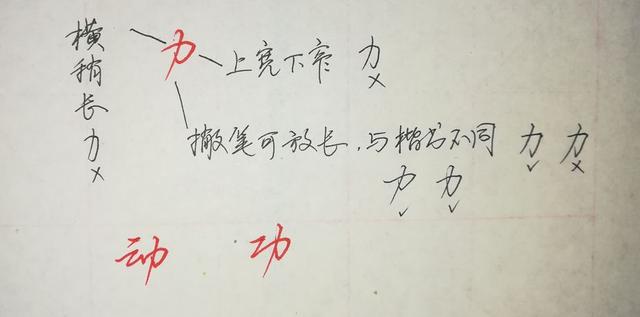 横稍长力×
力
上宽下窄 力×
撇笔可放长,与楷书不同 力✓ 力×
力✓ 力✓
动 功